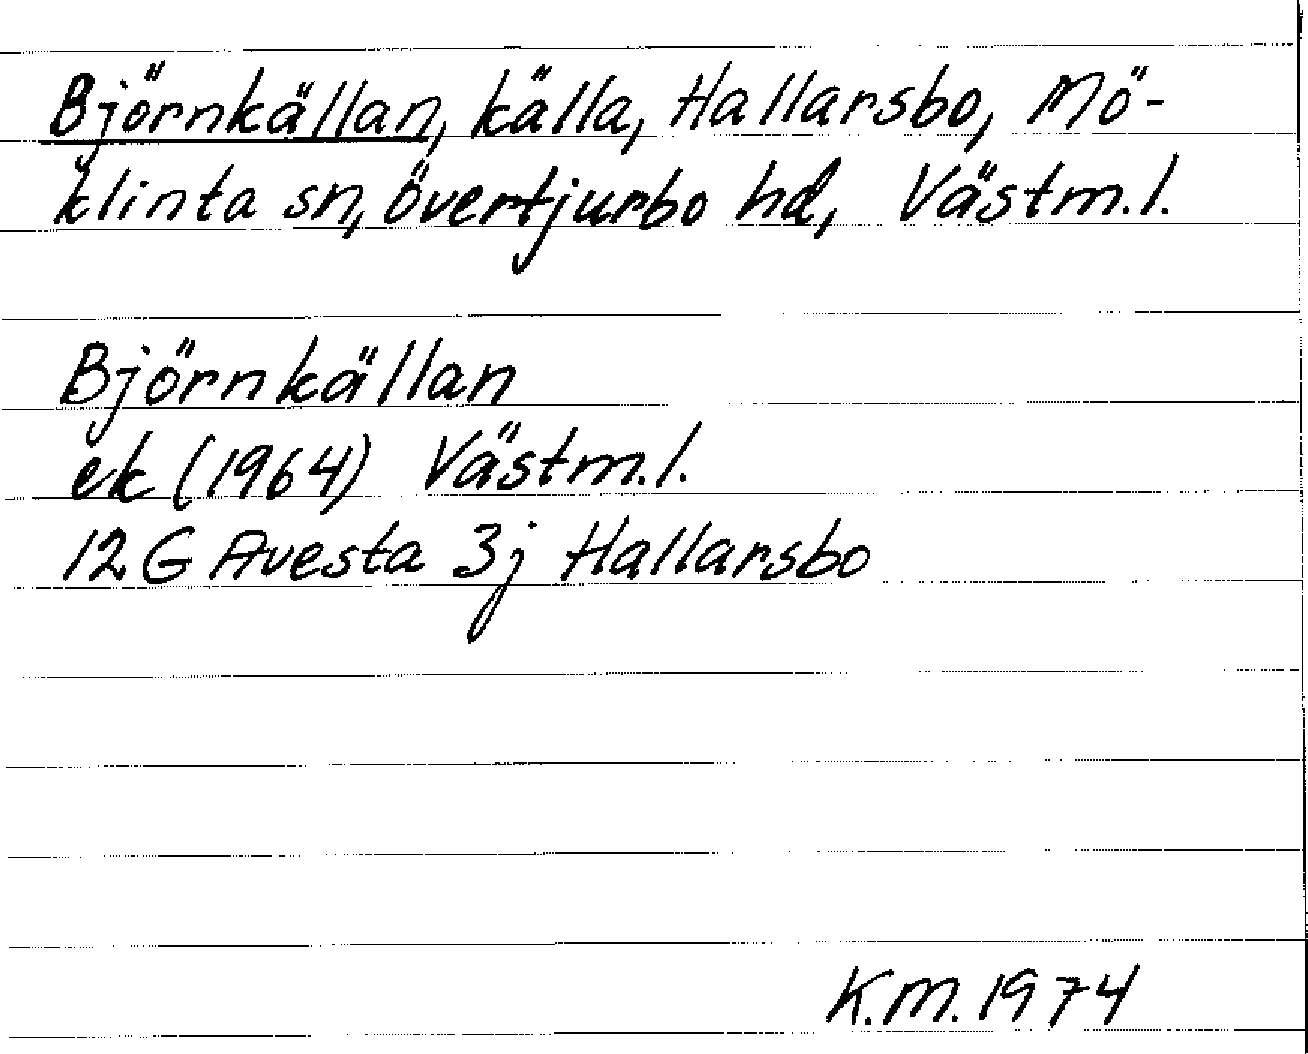 Björnkällan, källa, Hallarsbo, Mö-
klinta sn, övertjurbo hd, Västm.l.
Björnkällan
ek (1964) Västm.l.
12 G Avesta 3j Hallarsbo
K.M. 1974